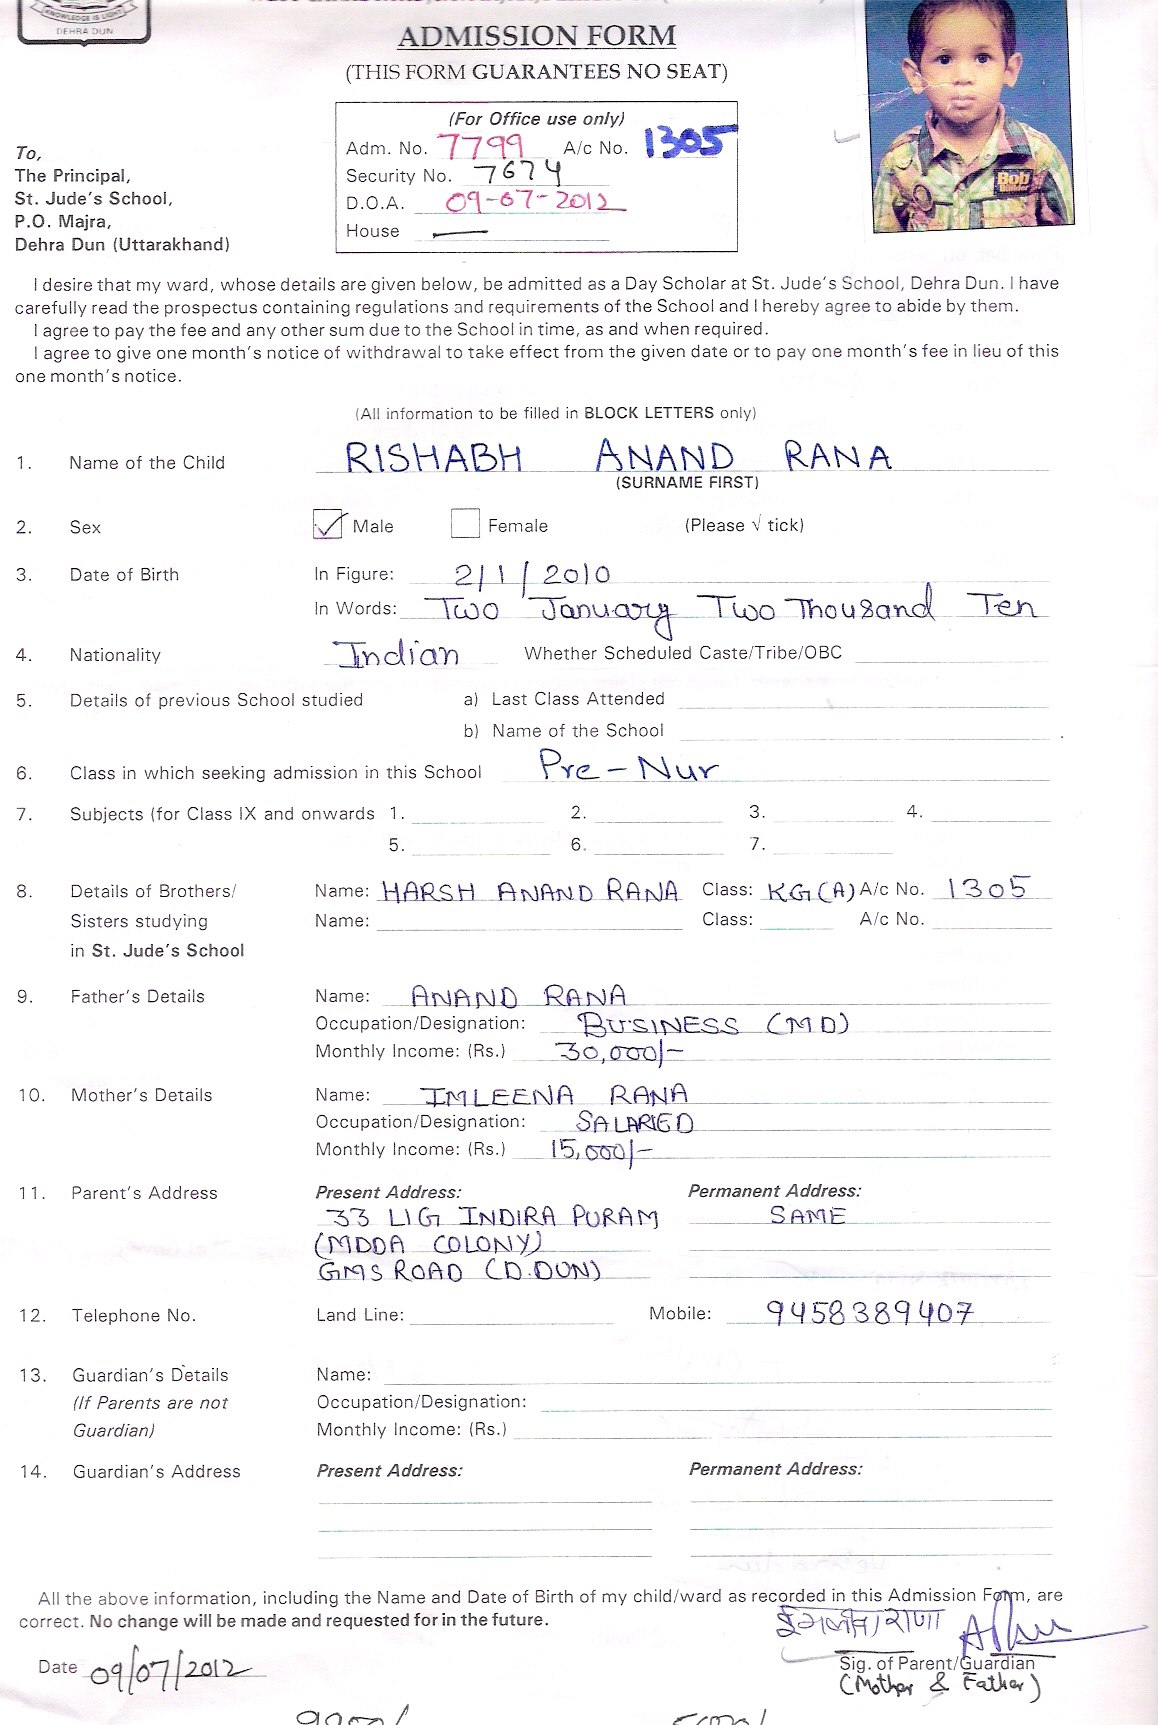 KNOWLEDGE IS LIGHT
DEHRA DUN
ADMISSION FORM
(THIS FORM GUARANTEES NO SEAT)
(For Office use only)
Adm. No. 7799 A/c No. 1305
Security No. 7674
D.O.A. 09-07-2012
House —
Bob
To,
The Principal,
St. Jude's School,
P.O. Majra,
Dehra Dun (Uttarakhand)
I desire that my ward, whose details are given below, be admitted as a Day Scholar at St. Jude's School, Dehra Dun. I have
carefully read the prospectus containing regulations and requirements of the School and I hereby agree to abide by them.
I agree to pay the fee and any other sum due to the School in time, as and when required.
I agree to give one month's notice of withdrawal to take effect from the given date or to pay one month's fee in lieu of this
one month's notice.
(All information to be filled in BLOCK LETTERS only)
1. Name of the Child RISHABH ANAND RANA
(SURNAME FIRST)
2. Sex ✓ Male Female (Please √ tick)
3. Date of Birth In Figure: 2/1/2010
In Words: Two January Two Thousand Ten
4. Nationality Indian Whether Scheduled Caste/Tribe/OBC
5. Details of previous School studied a) Last Class Attended
b) Name of the School
6. Class in which seeking admission in this School Pre-Nur
7. Subjects (for Class IX and onwards 1. 2. 3. 4.
5. 6. 7.
8. Details of Brothers/ Name: HARSH ANAND RANA Class: KG(A) A/c No. 1305
Sisters studying Name: Class: A/c No.
in St. Jude's School
9. Father's Details Name: ANAND RANA
Occupation/Designation: BUSINESS (MD)
Monthly Income: (Rs.) 30,000/-
10. Mother's Details Name: IMLEENA RANA
Occupation/Designation: SALARIED
Monthly Income: (Rs.) 15,000/-
11. Parent's Address Present Address: Permanent Address:
33 LIG INDIRA PURAM SAME
(MDDA COLONY)
GMS ROAD (D.DUN)
12. Telephone No. Land Line: Mobile: 9458389407
13. Guardian's Details Name:
(If Parents are not Occupation/Designation:
Guardian) Monthly Income: (Rs.)
14. Guardian's Address Present Address: Permanent Address:
All the above information, including the Name and Date of Birth of my child/ward as recorded in this Admission Form, are
correct. No change will be made and requested for in the future.
राणा
Date 09/07/2012 Sig. of Parent/Guardian
(Mother & Father)